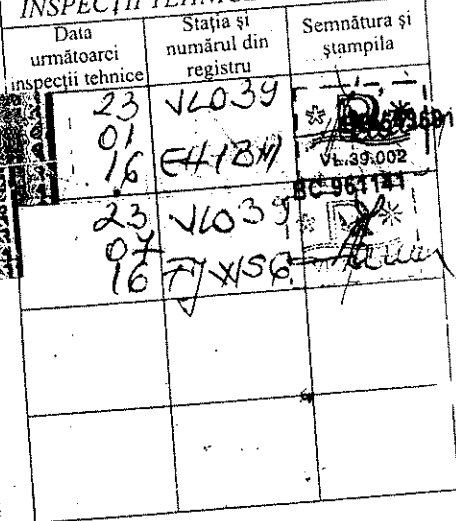 INSPECȚII TEHNICE
Data următoarei inspecții tehnice
Stația și numărul din registru
Semnătura și ștampila
23 01 16
VL039
VL.39.002
BC 961141
23 07 16
VL039